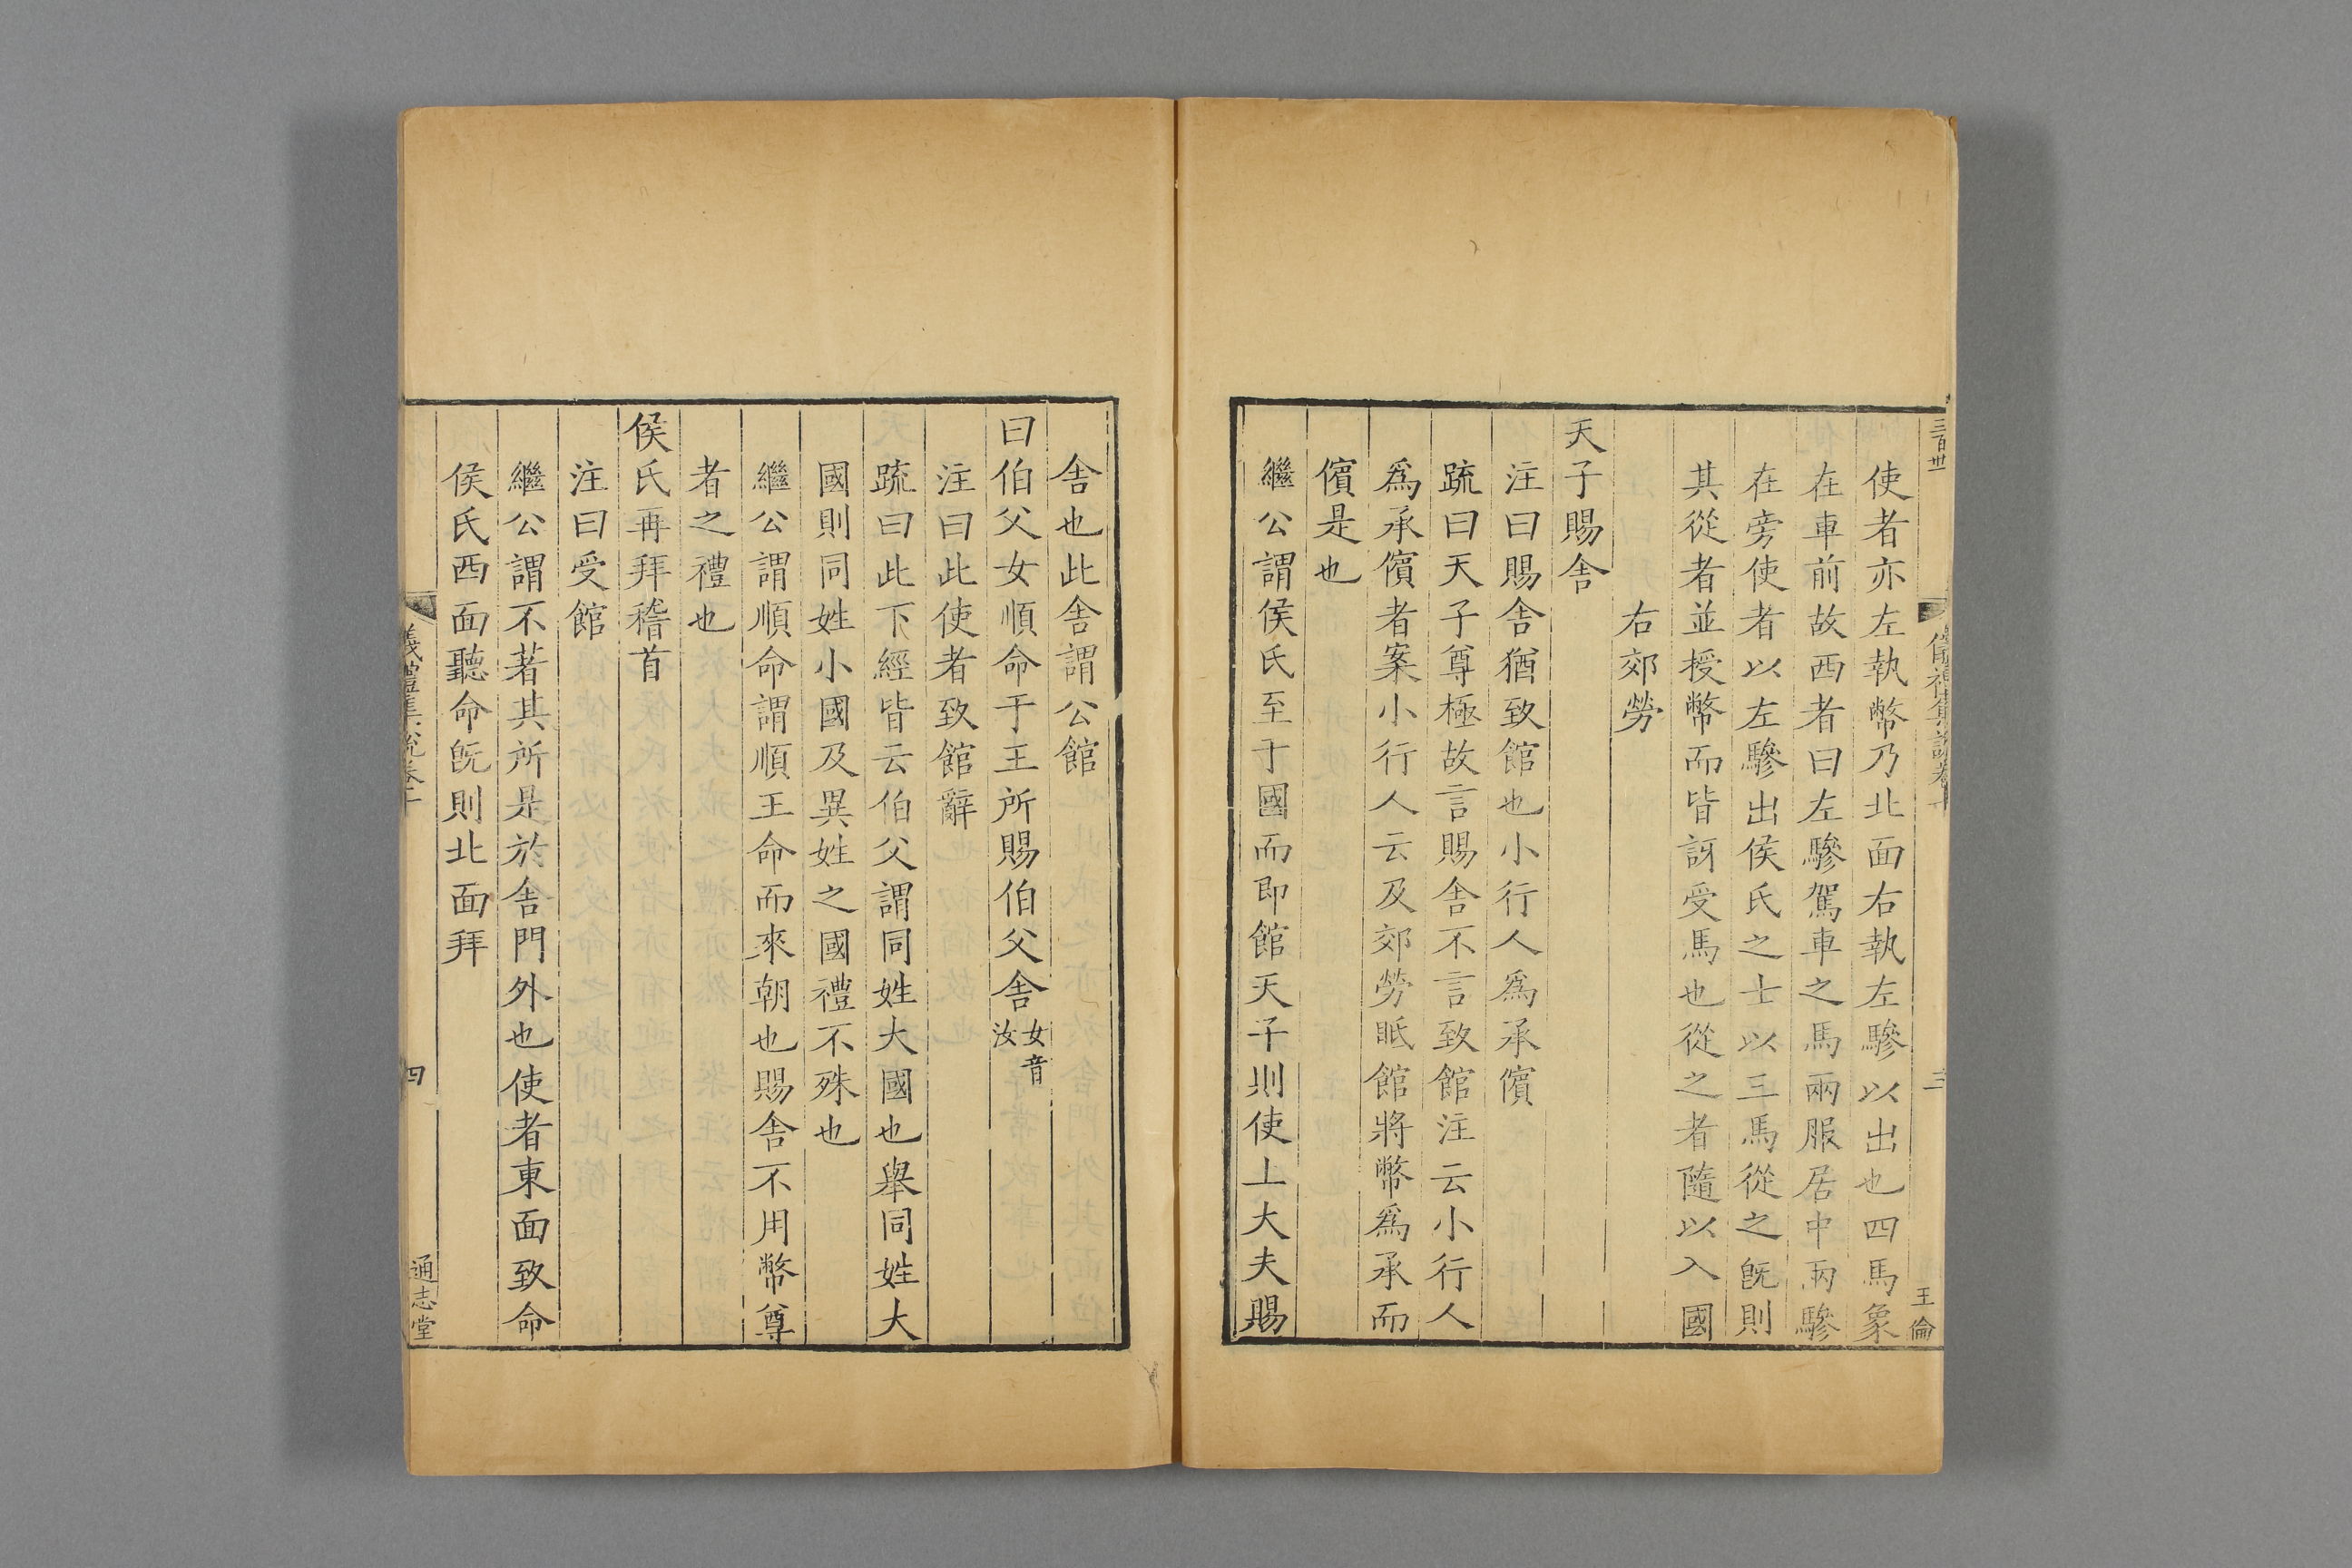 三百卅一
儀禮集説卷十
三
王倫
使者亦左執幣乃北面右執左驂以出也四馬象
在車前故西者曰左驂駕車之馬兩服居中兩驂
在旁使者以左驂出侯氏之士以三馬從之旣則
其從者並授幣而皆訝受馬也從之者隨以入國
右郊勞
天子賜舍
注曰賜舍猶致館也小行人爲承儐
疏曰天子尊極故言賜舍不言致館注云小行人
爲承儐者案小行人云及郊勞眡館將幣爲承而
儐是也
繼公謂侯氏至于國而即館天子則使上大夫賜
舍也此舍謂公館
曰伯父女順命于王所賜伯父舍女音汝
注曰此使者致館辭
疏曰此下經皆云伯父謂同姓大國也舉同姓大
國則同姓小國及異姓之國禮不殊也
繼公謂順命謂順王命而來朝也賜舍不用幣尊
者之禮也
侯氏再拜稽首
注曰受館
繼公謂不著其所是於舍門外也使者東面致命
侯氏西面聽命旣則北面拜
儀禮集説卷十
四
通志堂